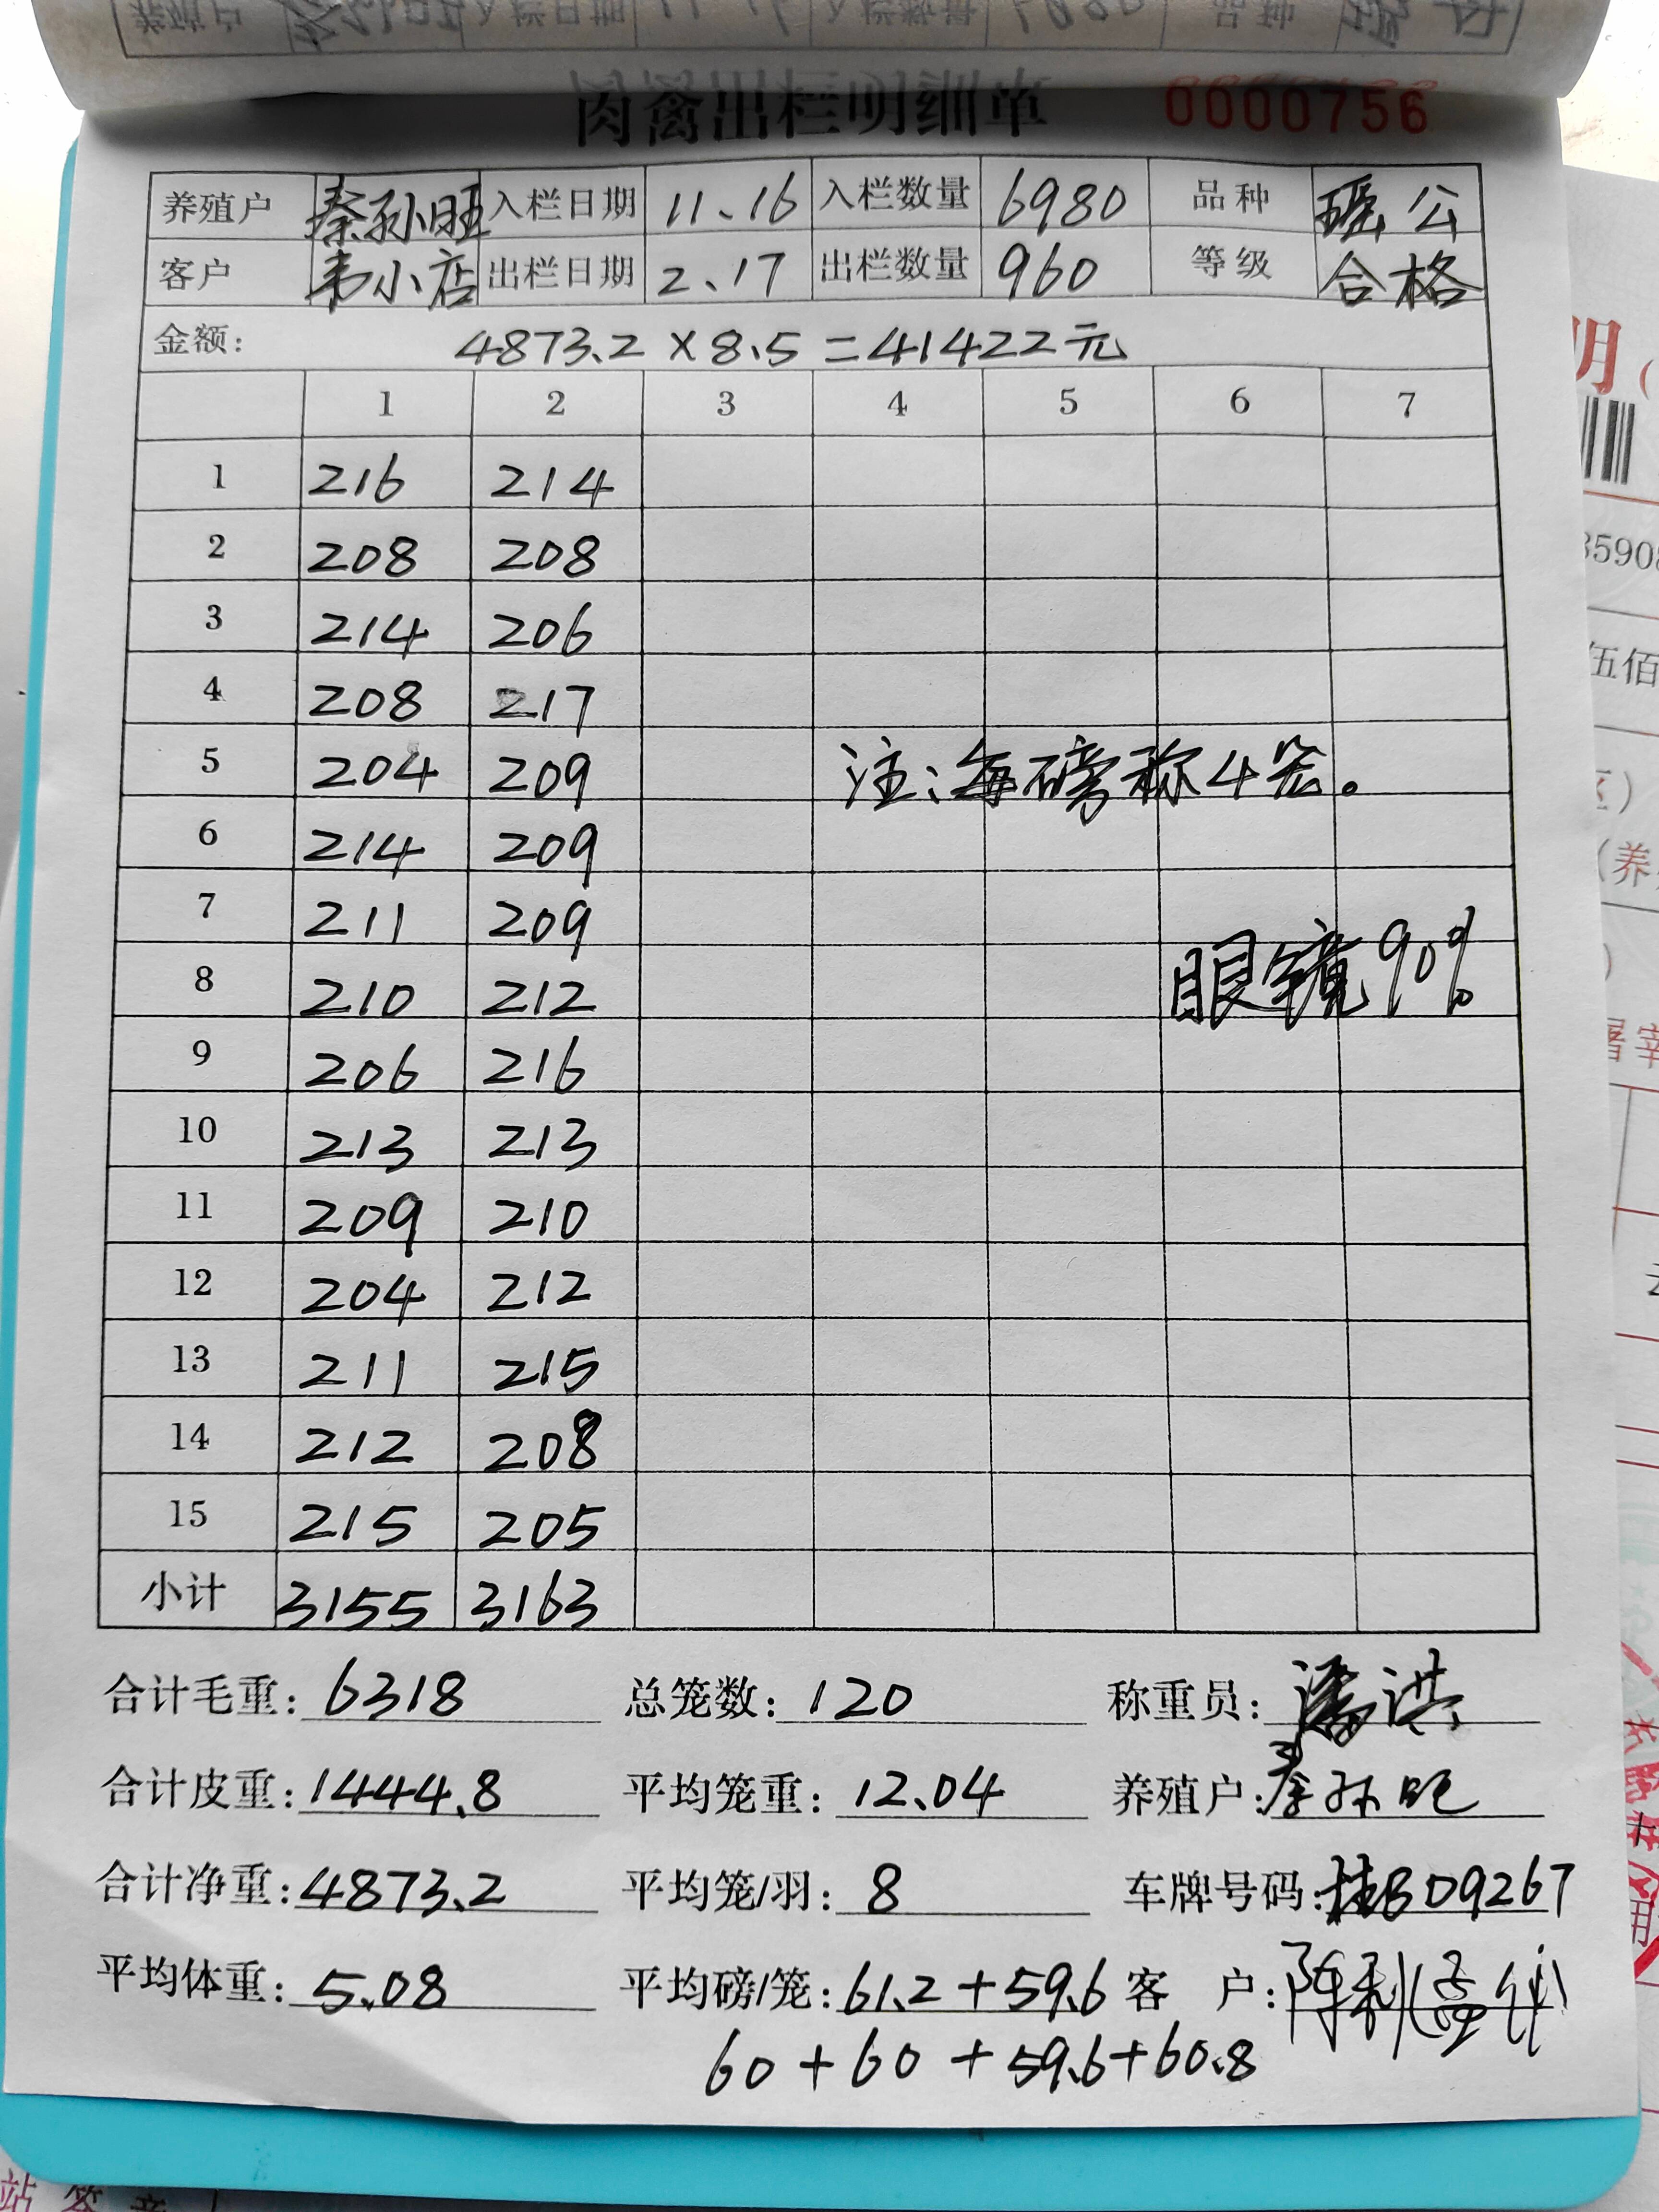 肉禽出栏明细单 0000756
养殖户 秦孙旺 入栏日期 11.16 入栏数量 6980 品种 瑶公
客户 韦小店 出栏日期 2.17 出栏数量 960 等级 合格
金额: 4873.2×8.5=41422元
1 2 3 4 5 6 7
1 216 214
2 208 208
3 214 206
4 208 217
5 204 209 注:每磅称4笼。
6 214 209
7 211 209
8 210 212 眼镜90%
9 206 216
10 213 213
11 209 210
12 204 212
13 211 215
14 212 208
15 215 205
小计 3155 3163
合计毛重: 6318 总笼数: 120 称重员: 潘洪
合计皮重: 1444.8 平均笼重: 12.04 养殖户: 秦孙旺
合计净重: 4873.2 平均笼/羽: 8 车牌号码: 桂BD9267
平均体重: 5.08 平均磅/笼: 61.2+59.6 客 户:
60+60+59.6+60.8
明(
3590
伍佰
区)
(养
屠宰
用
站签章